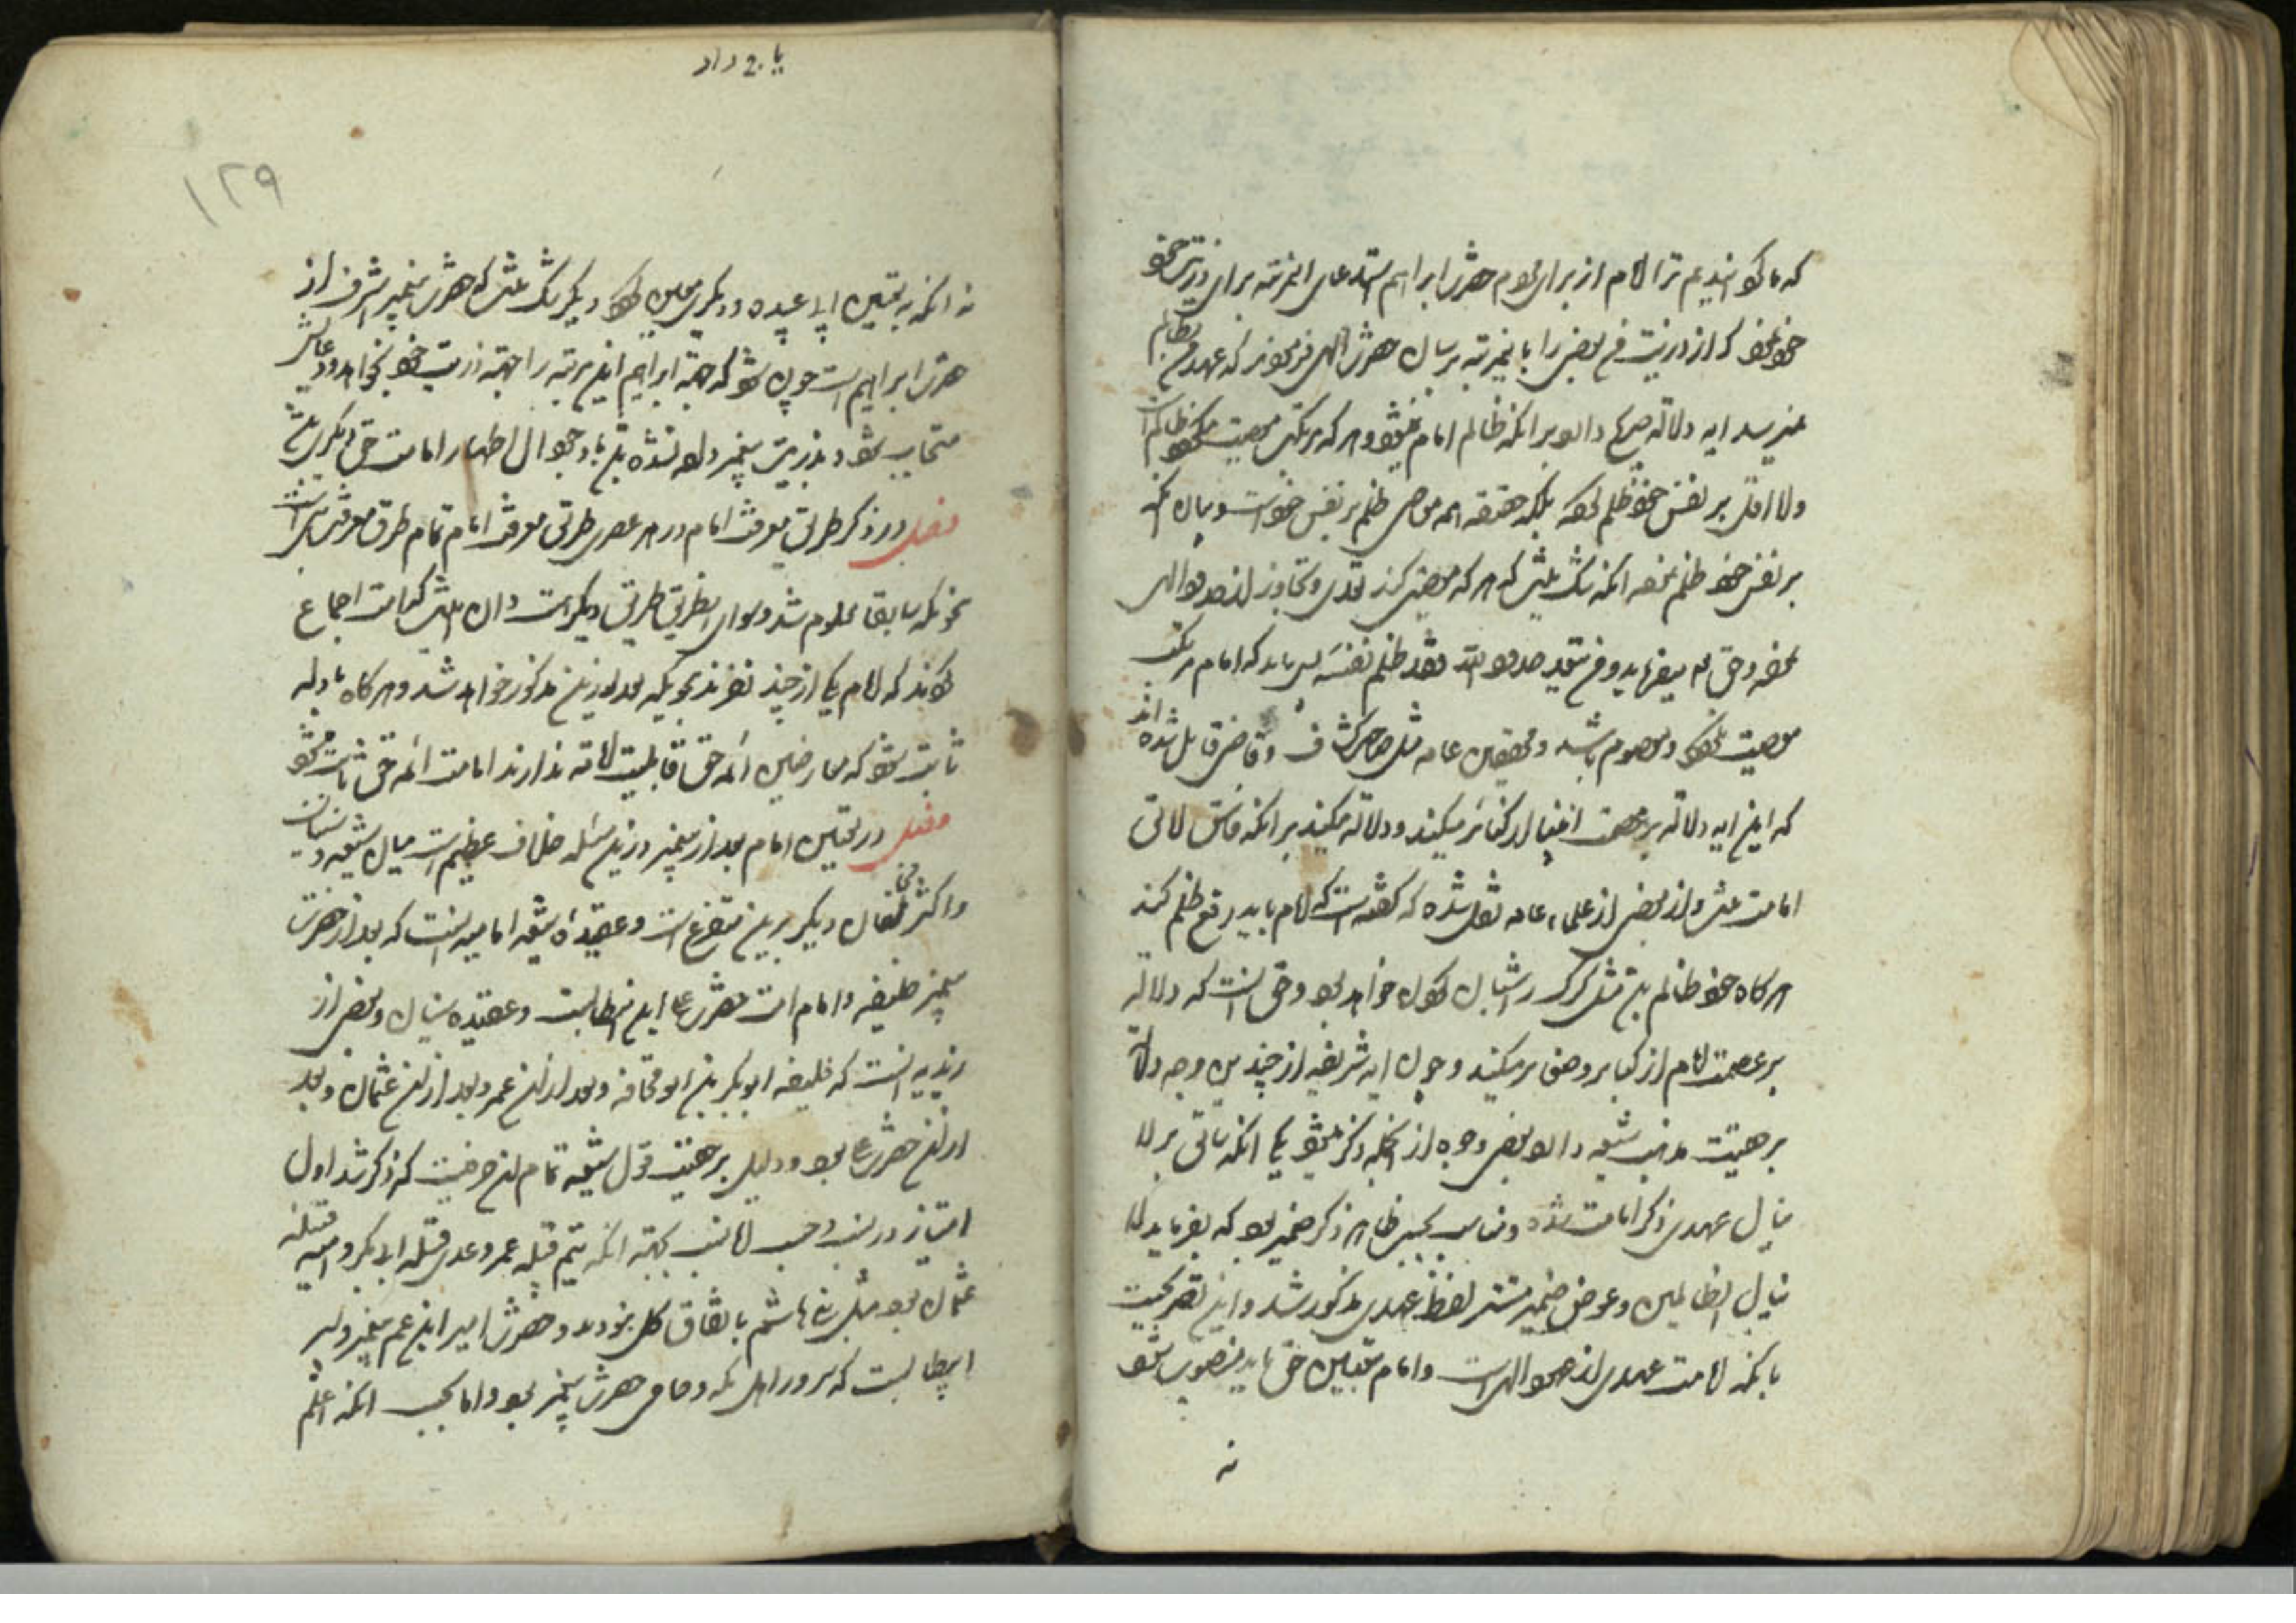 که ما گردانیدیم ترا امام از برای مردم حضرت ابراهیم استدعای این مرتبه برای ذریت خود
خود نمود که از ذریت من بعضی را باین مرتبه برسان حضرت الهی فرمودند که عهد من بظالم
نمیرسد این آیه دلالة صریح دارد بر آنکه ظالم امام نمیشود و هر که مرتکب معصیت میشود ظالم است
ولا اقل بر نفس خود ظلم کرده بلکه حقیقه همه معاصی ظلم بر نفس خود است و بیان آنکه
بر نفس خود ظلم نموده آنکه شک نیست که هر که معصیتی کند تعدی و تجاوز از حدود الهی
نموده و حق تع میفرماید و من یتعد حدود الله فقد ظلم نفسه پس باید که امام مرتکب
معصیت نشود و معصوم باشد و محققین عامه مثل صاحب کشاف و قاضی قایل شده اند
که این آیه دلالة بر عصمت انبیا از کبائر میکند و دلالة میکند بر آنکه فاسق لائق
امامت نیست و از بعضی از علماء عامه نقل شده که گفته است که امام باید رفع ظلم کند
هر گاه خود ظالم باشد مثل گرگ را شبان کردن خواهد بود و حق اینست که دلالة
بر عصمت امام از کبایر و صغایر میکند و چون این آیه شریفه از چندین وجه دلالة
بر حقیت مذهب شیعه دارد بعضی وجوه از آنجمله ذکر میشود یکی آنکه سابق بر لا
ینال عهدی ذکر امامت شده و مناسب بحسب ظاهر ذکر ضمیر بود که بفرماید لا
ینال الظالمین و عوض ضمیر مستتر لفظ عهدی مذکور شد و این تصریحیست
بآنکه امامت عهدی از عهود الهی است و امام بتعیین حق باید منصوب شود
نه
یا بدداد
۱۲۹
نه آنکه به تعیین ابا عبیده و دیگری معین شود دیگر شک نیست که حضرت پیغمبر اشرف از
حضرت ابراهیم است چون شود که حضرة ابراهیم این مرتبه را جهة ذریت خود بخواهد و دعایش
مستجاب شود و بذریت پیغمبر داده نشده باشد با وجود آن اظهار امامت حق دیگری باشد
فصل در ذکر طریق معرفت امام در هر عصری طریق معرفت امام تمام طرق معرفت نبی است
بنحویکه سابقا معلوم شد و سوای این طریق طریقی دیگر است و آن اینست که امت اجماع
کنند که امام یکی از چند نفرند بنحویکه بعد ازین مذکور خواهد شد و هر گاه بادله
ثابت شود که معارضین ائمه حق قابلیت امامة ندارند امامت ائمه حق ثابت میشود
فصل در تعیین امام بعد از پیغمبر درین مسئله خلاف عظیم است میان شیعه و سنیان
و اکثر مخالفان دیگر برین متفرع است و عقیده شیعه امامیه اینست که بعد از حضرت
پیغمبر خلیفه و امام امت حضرت علی ابن ابیطالبست و عقیده سنیان و بعضی از
زیدیه اینست که خلیفه ابوبکر بن ابوقحافه و بعد از آن عمر و بعد از آن عثمان و بعد
از آن حضرت علی بود و دلیل بر حقیت قول شیعه تمام آن چیزیست که ذکر شد اول
امتیاز در نسب و حسب اما نسب بجهة آنکه تیم قبیله عمر و عدی قبیله ابابکر و امیه قبیله
عثمان بود مثل بنی هاشم باتفاق کل نبودند و حضرت امیر ابن عم پیغمبر و پسر
ابیطالبست که سرور اهل مکه و حامی حضرت پیغمبر بود و اما حسب آنکه اعلم